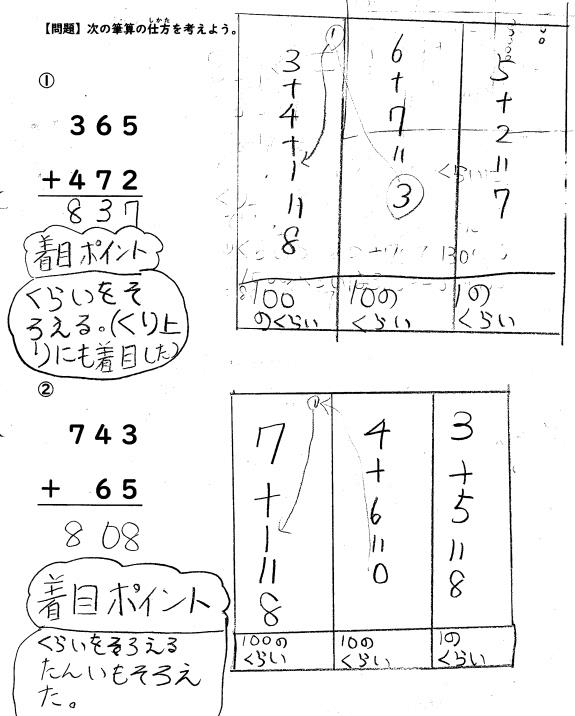 【問題】次の筆算の仕方を考えよう。
しかた
①
365
+472
837
着目ポイント
くらいをそ
ろえる。(くり上
り)にも着目した)
①
3+4+1=8
6+7=3
5+2=7
100
のくらい
10の
くらい
1の
くらい
②
743
+ 65
808
着目ポイント
くらいをそろえる
たんいもそろえ
た。
①
7+1=8
4+6=0
3+5=8
100の
くらい
10の
くらい
1の
くらい